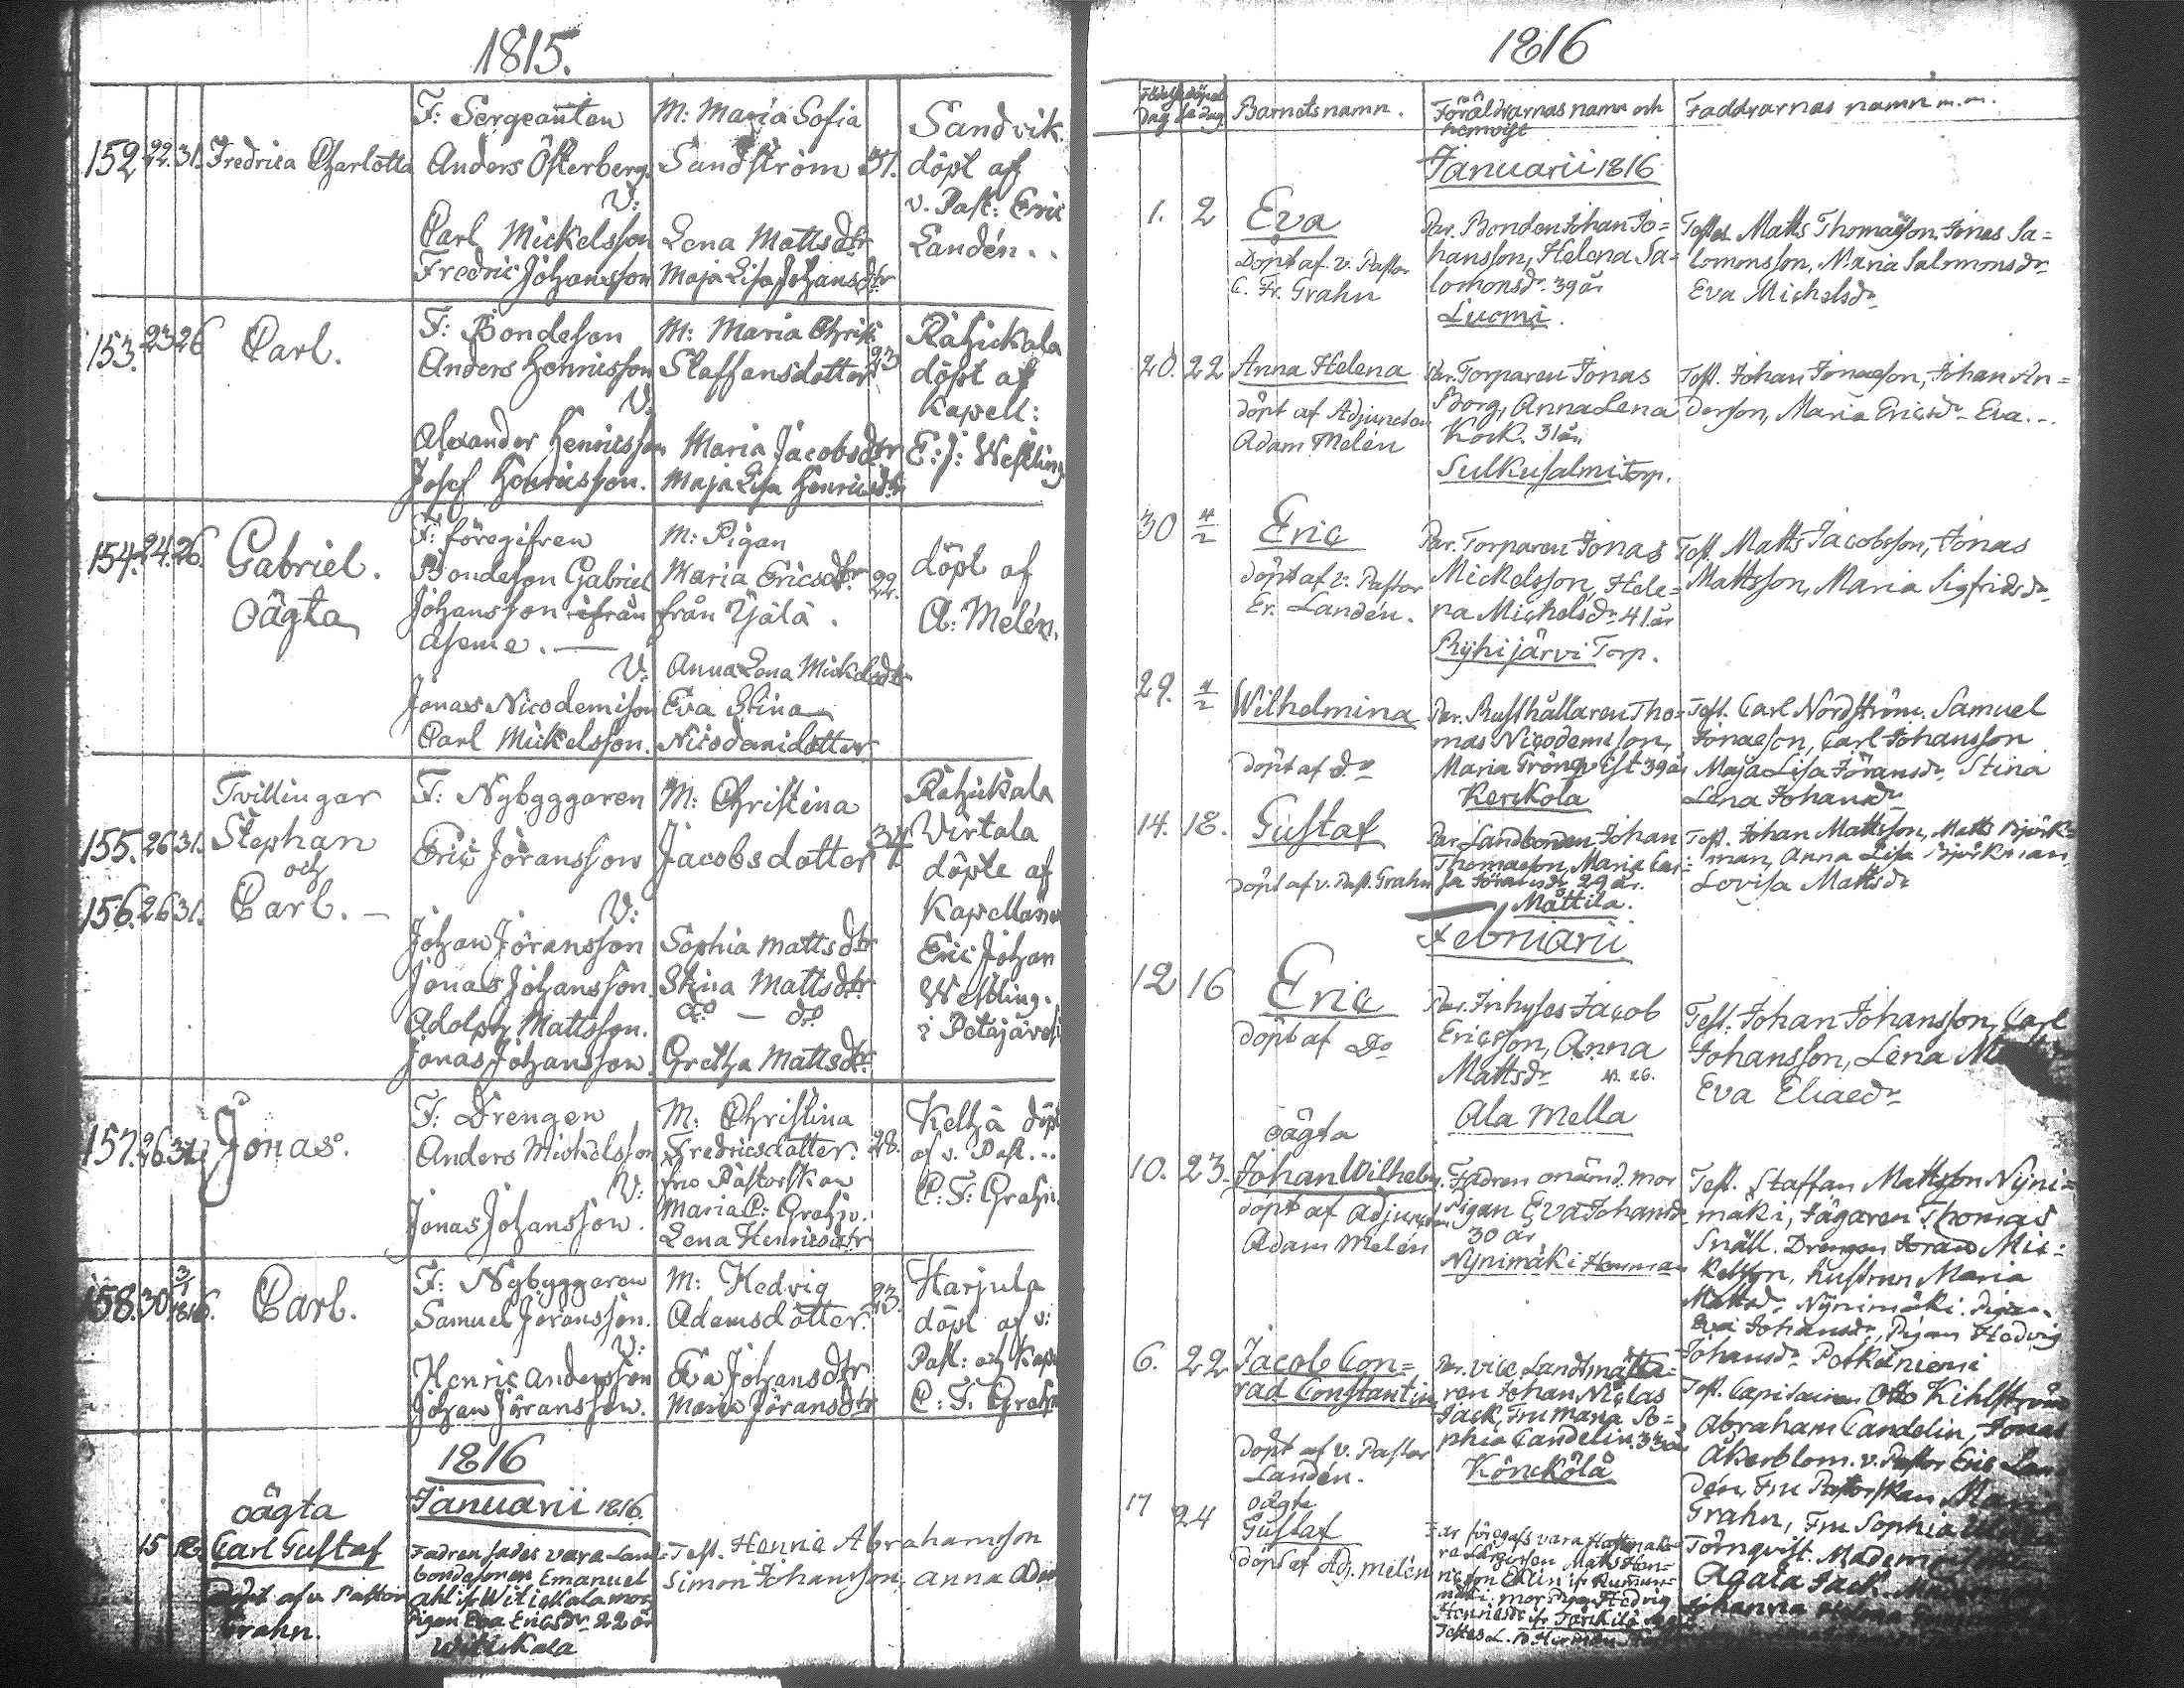 1815.
152 22. 31. Fredrica Charlotta
F: Sergeanten
Anders Österberg.
V:
Carl Mickelsson
Fredric Johansson
M: Maria Sofia
Sandström
Lena Mattsdtr
Maja Lisa Johansdtr
Sandvik
döpt af
v. Past: Eric
Landén..
153. 23 26 Carl.
F: Bondeson
Anders Henricsson
V:
Alexander Henricsson
Josef Henricsson.
M: Maria Christ:
Staffansdotter 23
Maria Jacobsdtr
Maja Lisa Henricsdtr
döpt af
Kapell:
E: J: Westling
154. 24. 26. Gabriel.
oägta
F: föregifven
Bondeson Gabriel
Johansson ifrån
V:
Jonas Nicodemison
Carl Mickelsson.
M: Pigan
Maria Ericsdtr. 22.
från
Anna Lena Mickelsdtr
Eva Stina
Nicodemidotter
döpt af
A: Melén.
Tvillingar
155. 26 31. Stephan
och
156. 26 31. Carl. –
F: Nybyggaren
Eric Jöransson
V:
Johan Jöransson
Jonas Johansson.
Adolph Mattsson.
Jonas Johansson
M: Christina
Jacobsdotter 34
Sophia Mattsdtr
Stina Mattsdtr
do — do
Gretha Mattsdtr.
Virtala
döpte af
Kapellanen
Eric Johan
Westling.
i Petäjävesi
157. 26 31 Jonas.
F: Drengen
Anders Mickelsson
V:
Jonas Johansson.
M: Christina
Fredricsdotter. 28.
fru Pastorskan
Maria C: Grahn.
Lena Henricsdtr
Keltjä döpt
af v. Past...
C: F: Grahn.
158. 30 3/1 1816. Carl.
F: Nybyggaren
Samuel Jöransson.
V:
Henric Andersson
Johan Jöransson.
M: Hedvig
Adamsdotter. 23.
Eva Johansdtr
Maria Jöransdtr
Harjula
döpt af v:
Past: och Kap
C: F. Grahn
1816
Januarii 1816.
oägta
15 Carl Gustaf
döpt af v. Pastor
Grahn.
Fadren sades vara Land
bondesonen Emanuel
mor
Pigan Eva Ericsdr 22 år
Witickala
Test. Henric Abrahamsson
Simon Johansson, Anna
1816
Födelse dag Döpel sedag Barnets namn. Föräldrarnas namn och hemvist Faddrarnas namn m.m.
Januarii 1816
1. 2 Eva
Döpt af v. Pastor
C. Fr. Grahn
Par. Bonden Johan Jo=
hansson, Helena Sa=
lomonsdr 39 år
Luomi.
Testes Matts Thomæson, Jonas Sa=
lomonsson, Maria Salomonsdr
Eva Michelsdr
20. 22 Anna Helena
Döpt af Adjuncten
Adam Melén
Par. Torparen Jonas
Borg, Anna Lena
Kock. 31 år.
Sulkusalmi Torp.
Test. Johan Jonaeson, Johan An=
dersson, Maria Ericsdr Eva...
30 4/2 Eric
Döpt af v. Pastor
Er. Landén.
Par. Torparen Jonas
Mickelsson, Hele=
na Michelsdr 41 år
Ryhijärvi Torp.
Test. Matts Jacobsson, Jonas
Mattsson, Maria Sigfridsdr
29. 4/2 Wilhelmina
Döpt af do
Par. Rusthållaren Tho=
mas Nicodemison,
Maria Grönqvist 39 år
Kerckola
Test. Carl Nordström. Samuel
Jonaeson, Carl Johansson
Maja Lisa Jöransdr, Stina
Lena Johansdr
14. 18. Gustaf
Döpt af v. Past. Grahn
Par. Landbonden Johan
Thomaeson, Maria Cai=
sa Jöransdr 29 år.
Mattila.
Test. Johan Mattsson, Matts Björk=
man, Anna Lisa Björkman,
Lovisa Mattsdr
Februarii
12 16 Eric
Döpt af Do
Par. Inhyses Jacob
Ericsson, Anna
Mattsdr 26.
Ala Mella
Test. Johan Johansson, Carl
Johansson, Lena
Eva Eliaedr
oägta
10. 23. Johan Wilhelm
döpt af Adjuncten
Adam Melén
Fadren onämd. mor
Pigan Eva Johansdr
30 år
Nynimäki Hemman
Test. Staffan Mattsson Nyni=
mäki, Jägaren Thomas
Snäll. Drengen Jöran Mic=
kelsson, hustrun Maria
Mattsdr, Nynimäki. Pigan
Eva Johansdr, Pigan Hedvig
Johansdr Potkaniemi
6. 22 Jacob Con=
rad Constantin
Döpt af v. Pastor
Landén.
Par. vice Landtmäta=
ren Johan Niclas
Jack, Fru Maria So=
phia Candelin. 33 år
Könckölä
Test. Capitainen Otto Kihlström
Abraham Candelin, Jonas
Åkerblom. v. Pastor Eric Lan=
dén, Fru Pastorskan Maria
Grahn, Fru Sophia
Törnqvist. Mademoiselle
Agata Jack.
Johanna
17 24 oägta
Gustaf
Döpt af Adj. Melén
Far föregafs vara
Matts Hen=
ricsson
mor Pigan Hedvig
Henricsdr
Testes